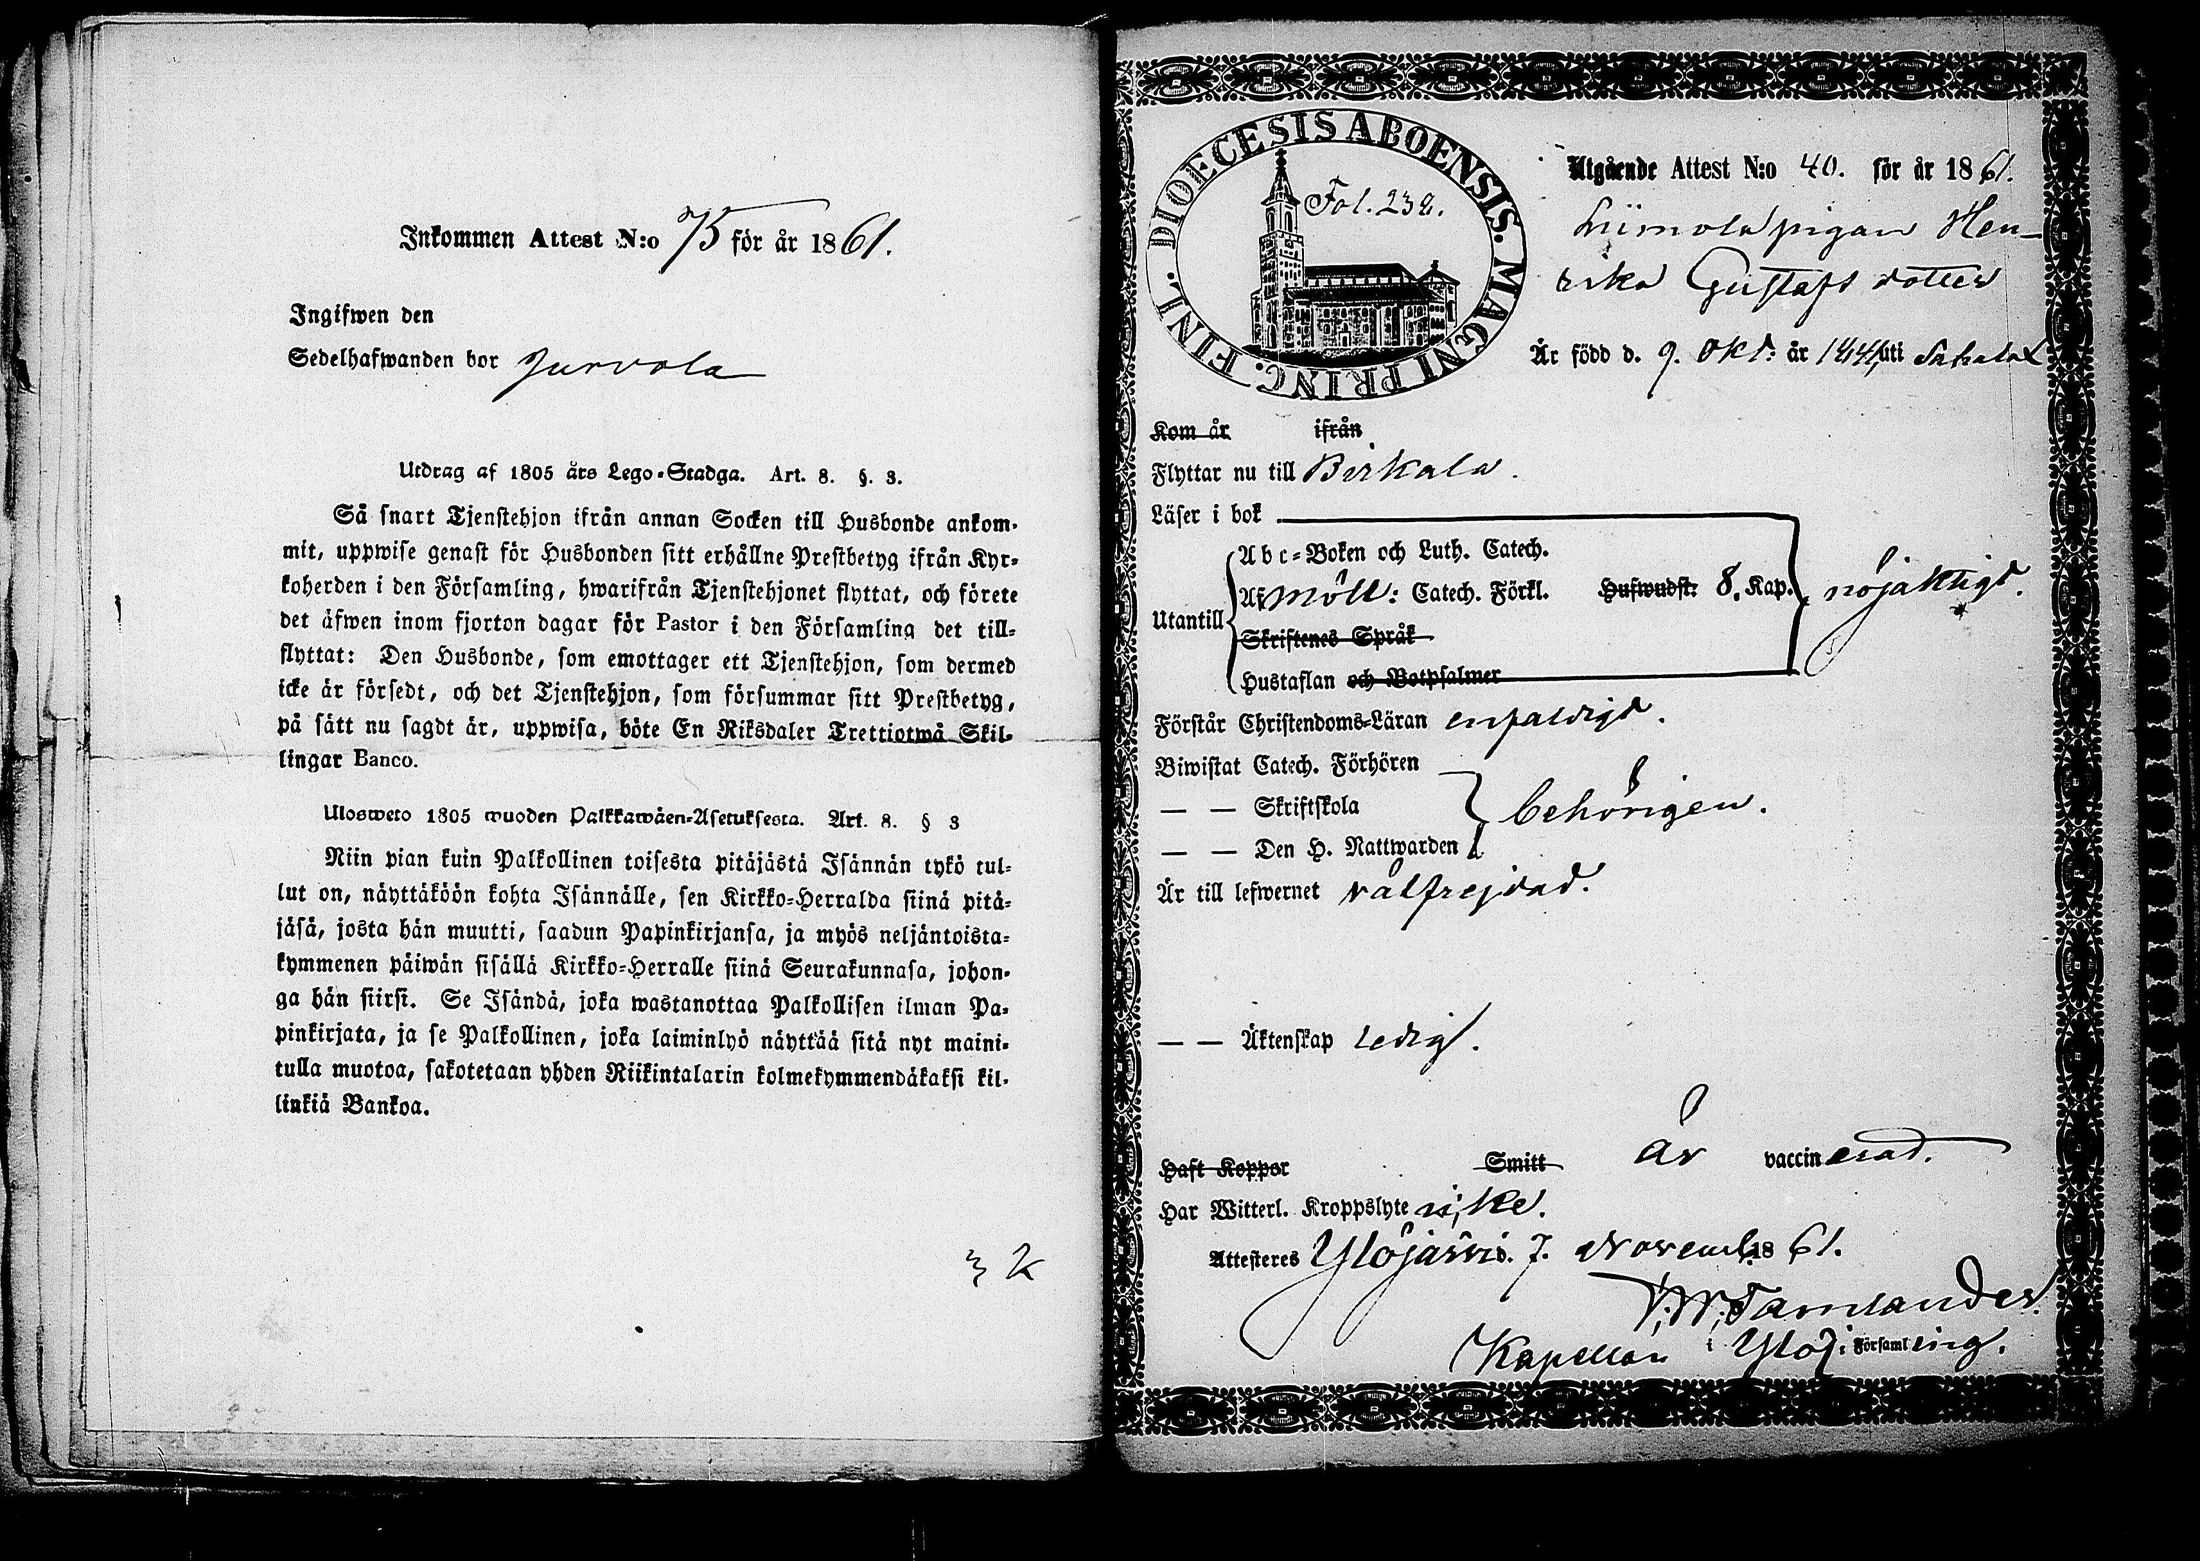 Inkommen Attest N:o 75 för år 1861.
Ingifwen den
Sedelhafwanden bor Jurvola
Utdrag af 1805 års Lego-Stadga. Art. 8. §. 3.
Så snart Tjenstehjon ifrån annan Socken till Husbonde ankom-
mit, uppwise genast för Husbonden sitt erhållne Prestbetyg ifrån Kyr-
koherden i den Församling, hwarifrån Tjenstehjonet flyttat, och förete
det äfwen inom fjorton dagar för Pastor i den Församling det till-
flyttat: Den Husbonde, som emottager ett Tjenstehjon, som dermed
icke är försedt, och det Tjenstehjon, som försummar sitt Prestbetyg,
på sätt nu sagdt är, uppwisa, böte En Riksdaler Trettiotwå Skil-
lingar Banco.
Ulosweto 1805 wuoden Palkkawäen-Asetuksesta. Art. 8. § 3
Niin pian kuin Palkollinen toisesta pitäjästä Isännän tykö tul-
lut on, näyttäköön kohta Isännälle, sen Kirkko-Herralda siinä pitä-
jäsä, josta hän muutti, saadun Papinkirjansa, ja myös neljäntoista-
kymmenen päiwän sisällä Kirkko-Herralle siinä Seurakunnasa, johon-
ga hän siirsi. Se Isändä, joka wastanottaa Palkollisen ilman Pa-
pinkirjata, ja se Palkollinen, joka laiminlyö näyttää sitä nyt maini-
tulla muotoa, sakotetaan yhden Riikintalarin kolmekymmendäkaksi kil-
linkiä Bankoa.
3 K
DIOECESIS ABOENSIS. MAGNI PRINC. FINL.
Fol. 232.
Utgående Attest N:o 40. för år 1861.
Liimola pigan Hen-
rika Gustafs dotter
Är född d. 9. Okt: år 1844 uti
Kom år ifrån
Flyttar nu till Birkala.
Läser i bok
Abc-Boken och Luth. Catech.
Utantill Af Möll: Catech. Förkl. Hufwudst: 8. Kap. nöjaktigt.
Skriftenes Språk
Hustaflan och Botpsalmer
Förstår Christendoms-Läran enfaldigt.
Biwistat Catech. Förhören
— — Skriftskola behörigen.
— — Den H. Nattwarden
Är till lefwernet välfrejdad.
— — Äktenskap ledig.
Haft Koppor Smitt är vaccinerad.
Har Witterl. Kroppslyte icke.
Attesteres Ylöjärvi d. 7. Novemb. 1861.
Kapellan i Ylöj: Församling.